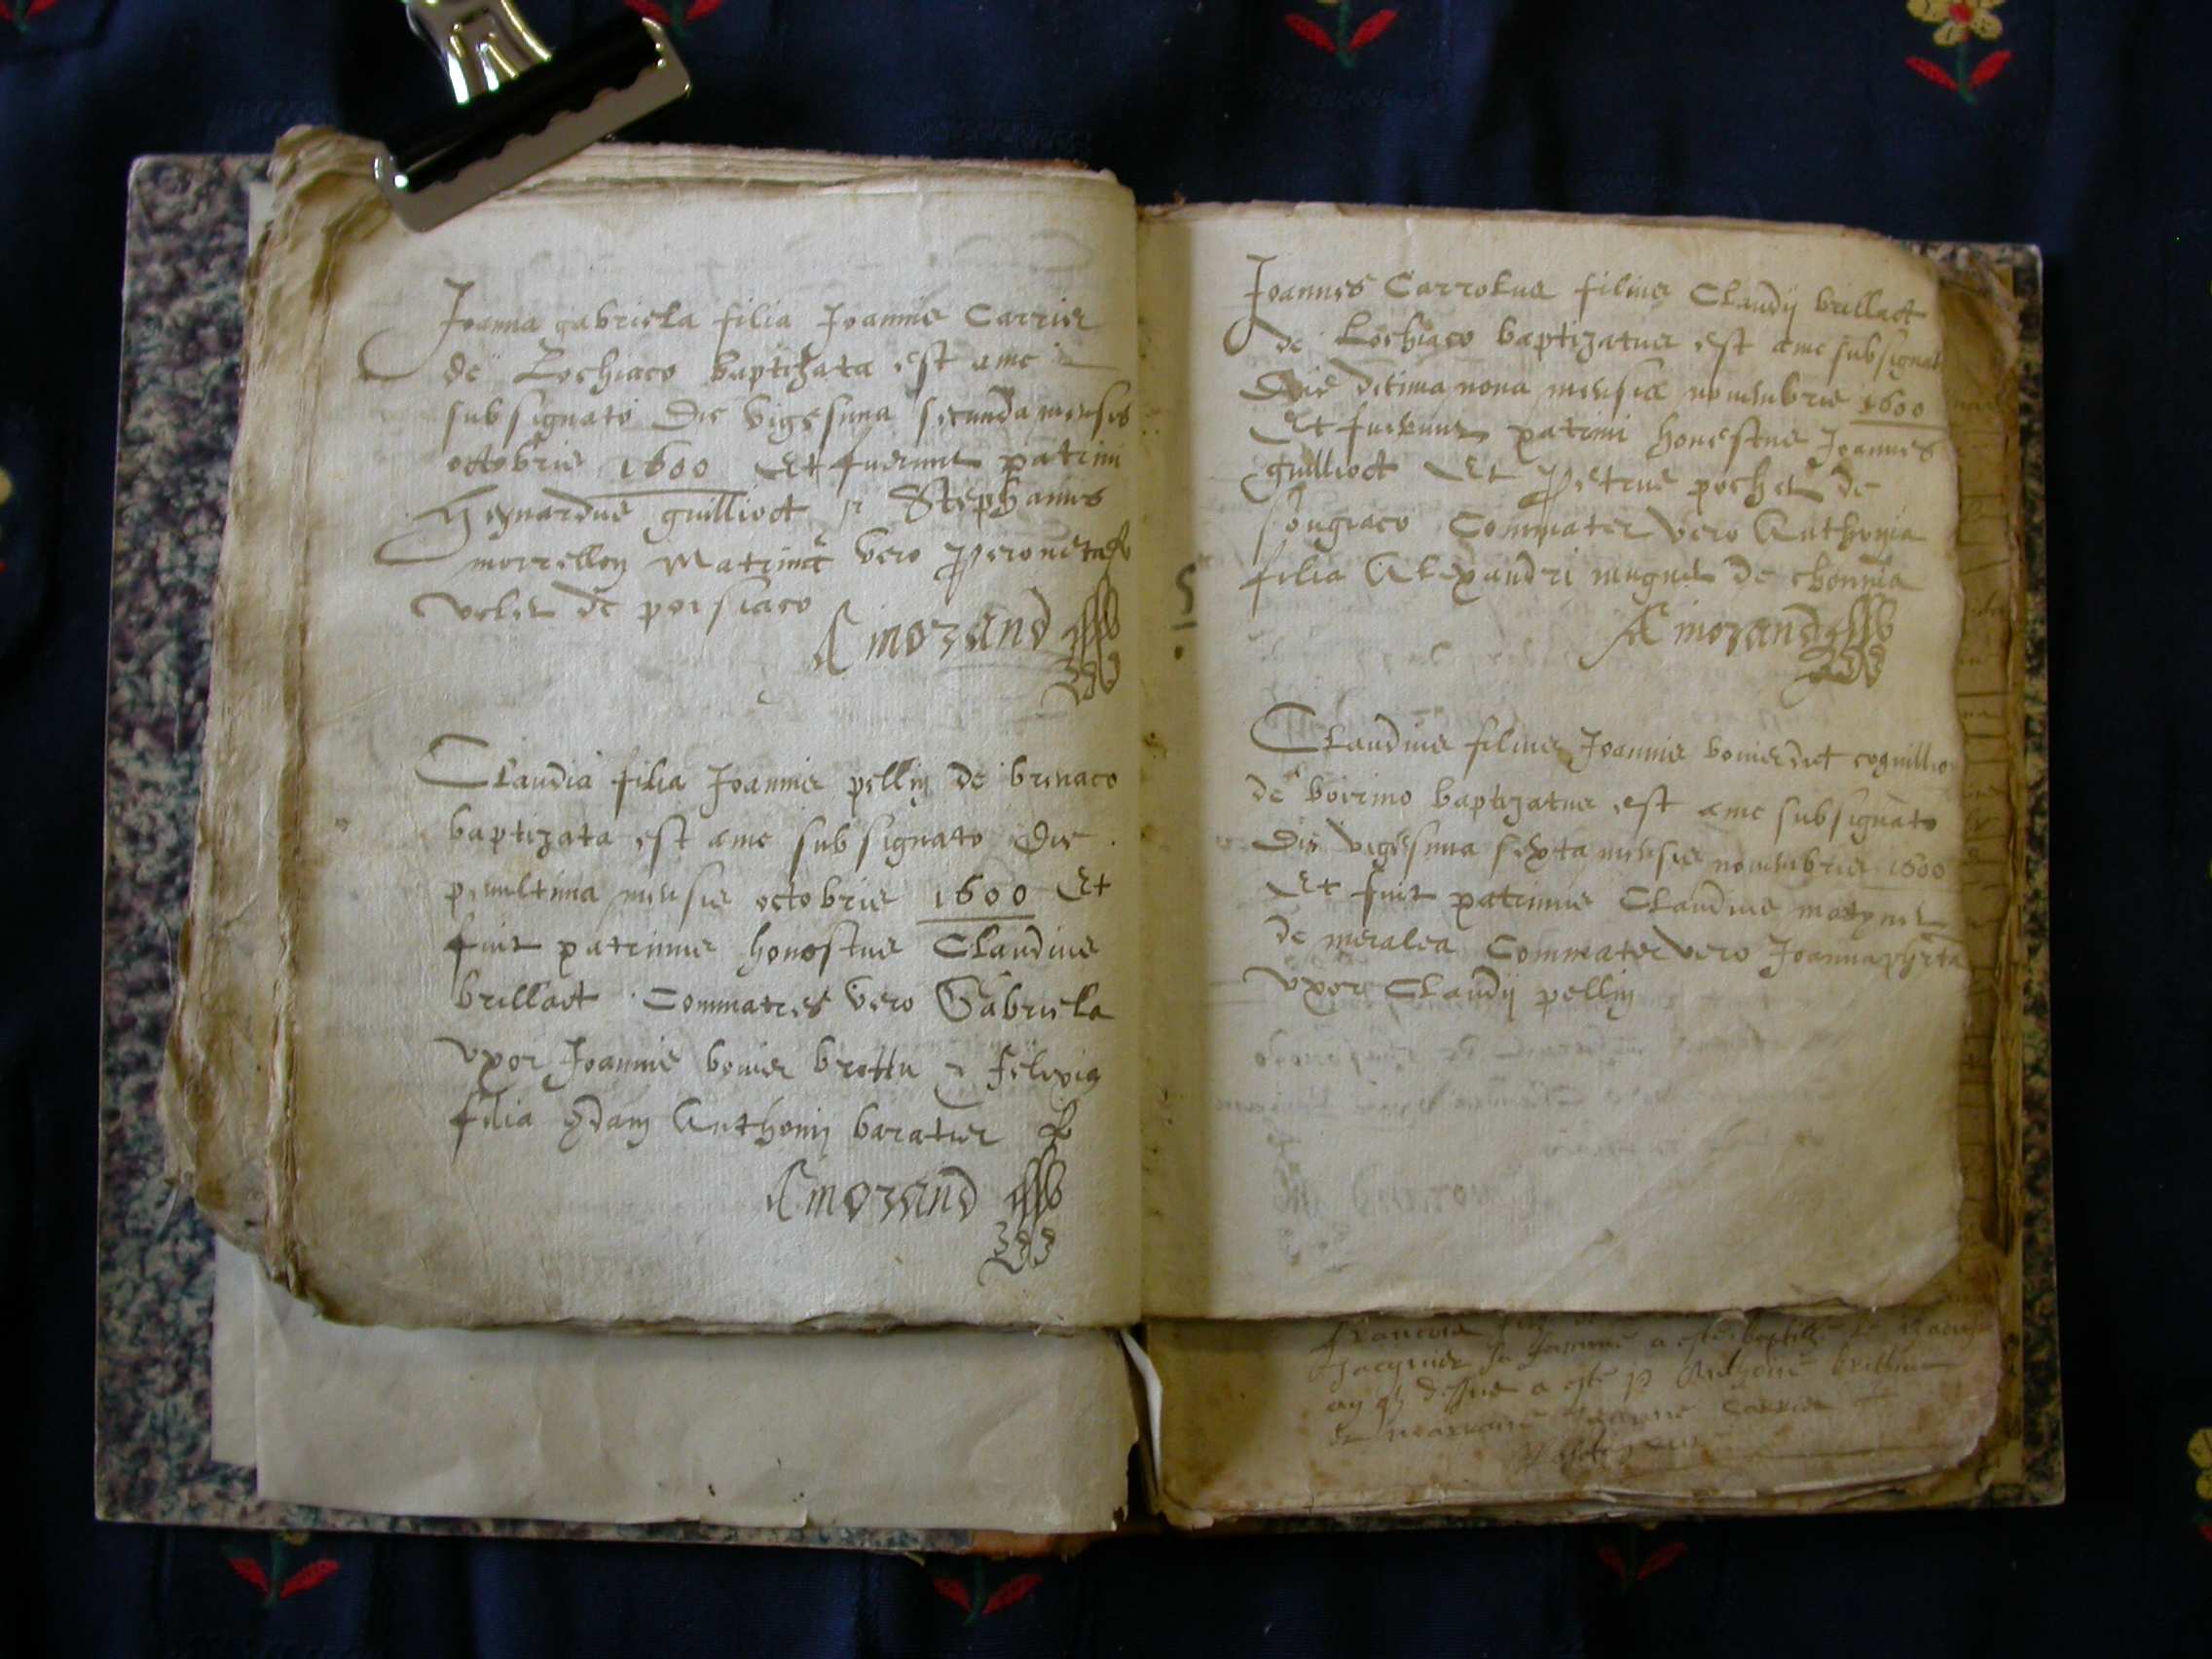 Joanna gabriela filia Joannis Carrier
de Lochiaco baptizata est a me
subsignato Die vigesima secunda mensis
octobris 1600 Et fuerunt patrini
guillioct & Stephanus
morrellon Matrina vero Peroneta
velet de poisiaco
A morand
Claudia filia Joannis pellin de brenaco
baptizata est a me subsignato Die
penultima mensis octobris 1600 Et
fuit patrinus honestus Claudius
brillact Commatres vero Gabriela
vxor Joannis bouier brottu &
filia qdam Anthonij baratier
A morand
Joannes Carrolus filius Claudij brillact
de Lochiaco baptizatus est a me subsignat
Die decima nona mensis nouembris 1600
Et fuerunt patrini honestus Joannes
guillioct Et Petrus pochet de
songiaco Commater vero Anthonia
filia Alexandri mugnet de
A morand
Claudius filius Joannis bouier dict coquillio
de boirino baptizatus est a me subsignato
Die vigesima sexta mensis nouembris 1600
Et fuit patrinus Claudius
de meralea Commater vero Joanna
vxor Claudij pellin